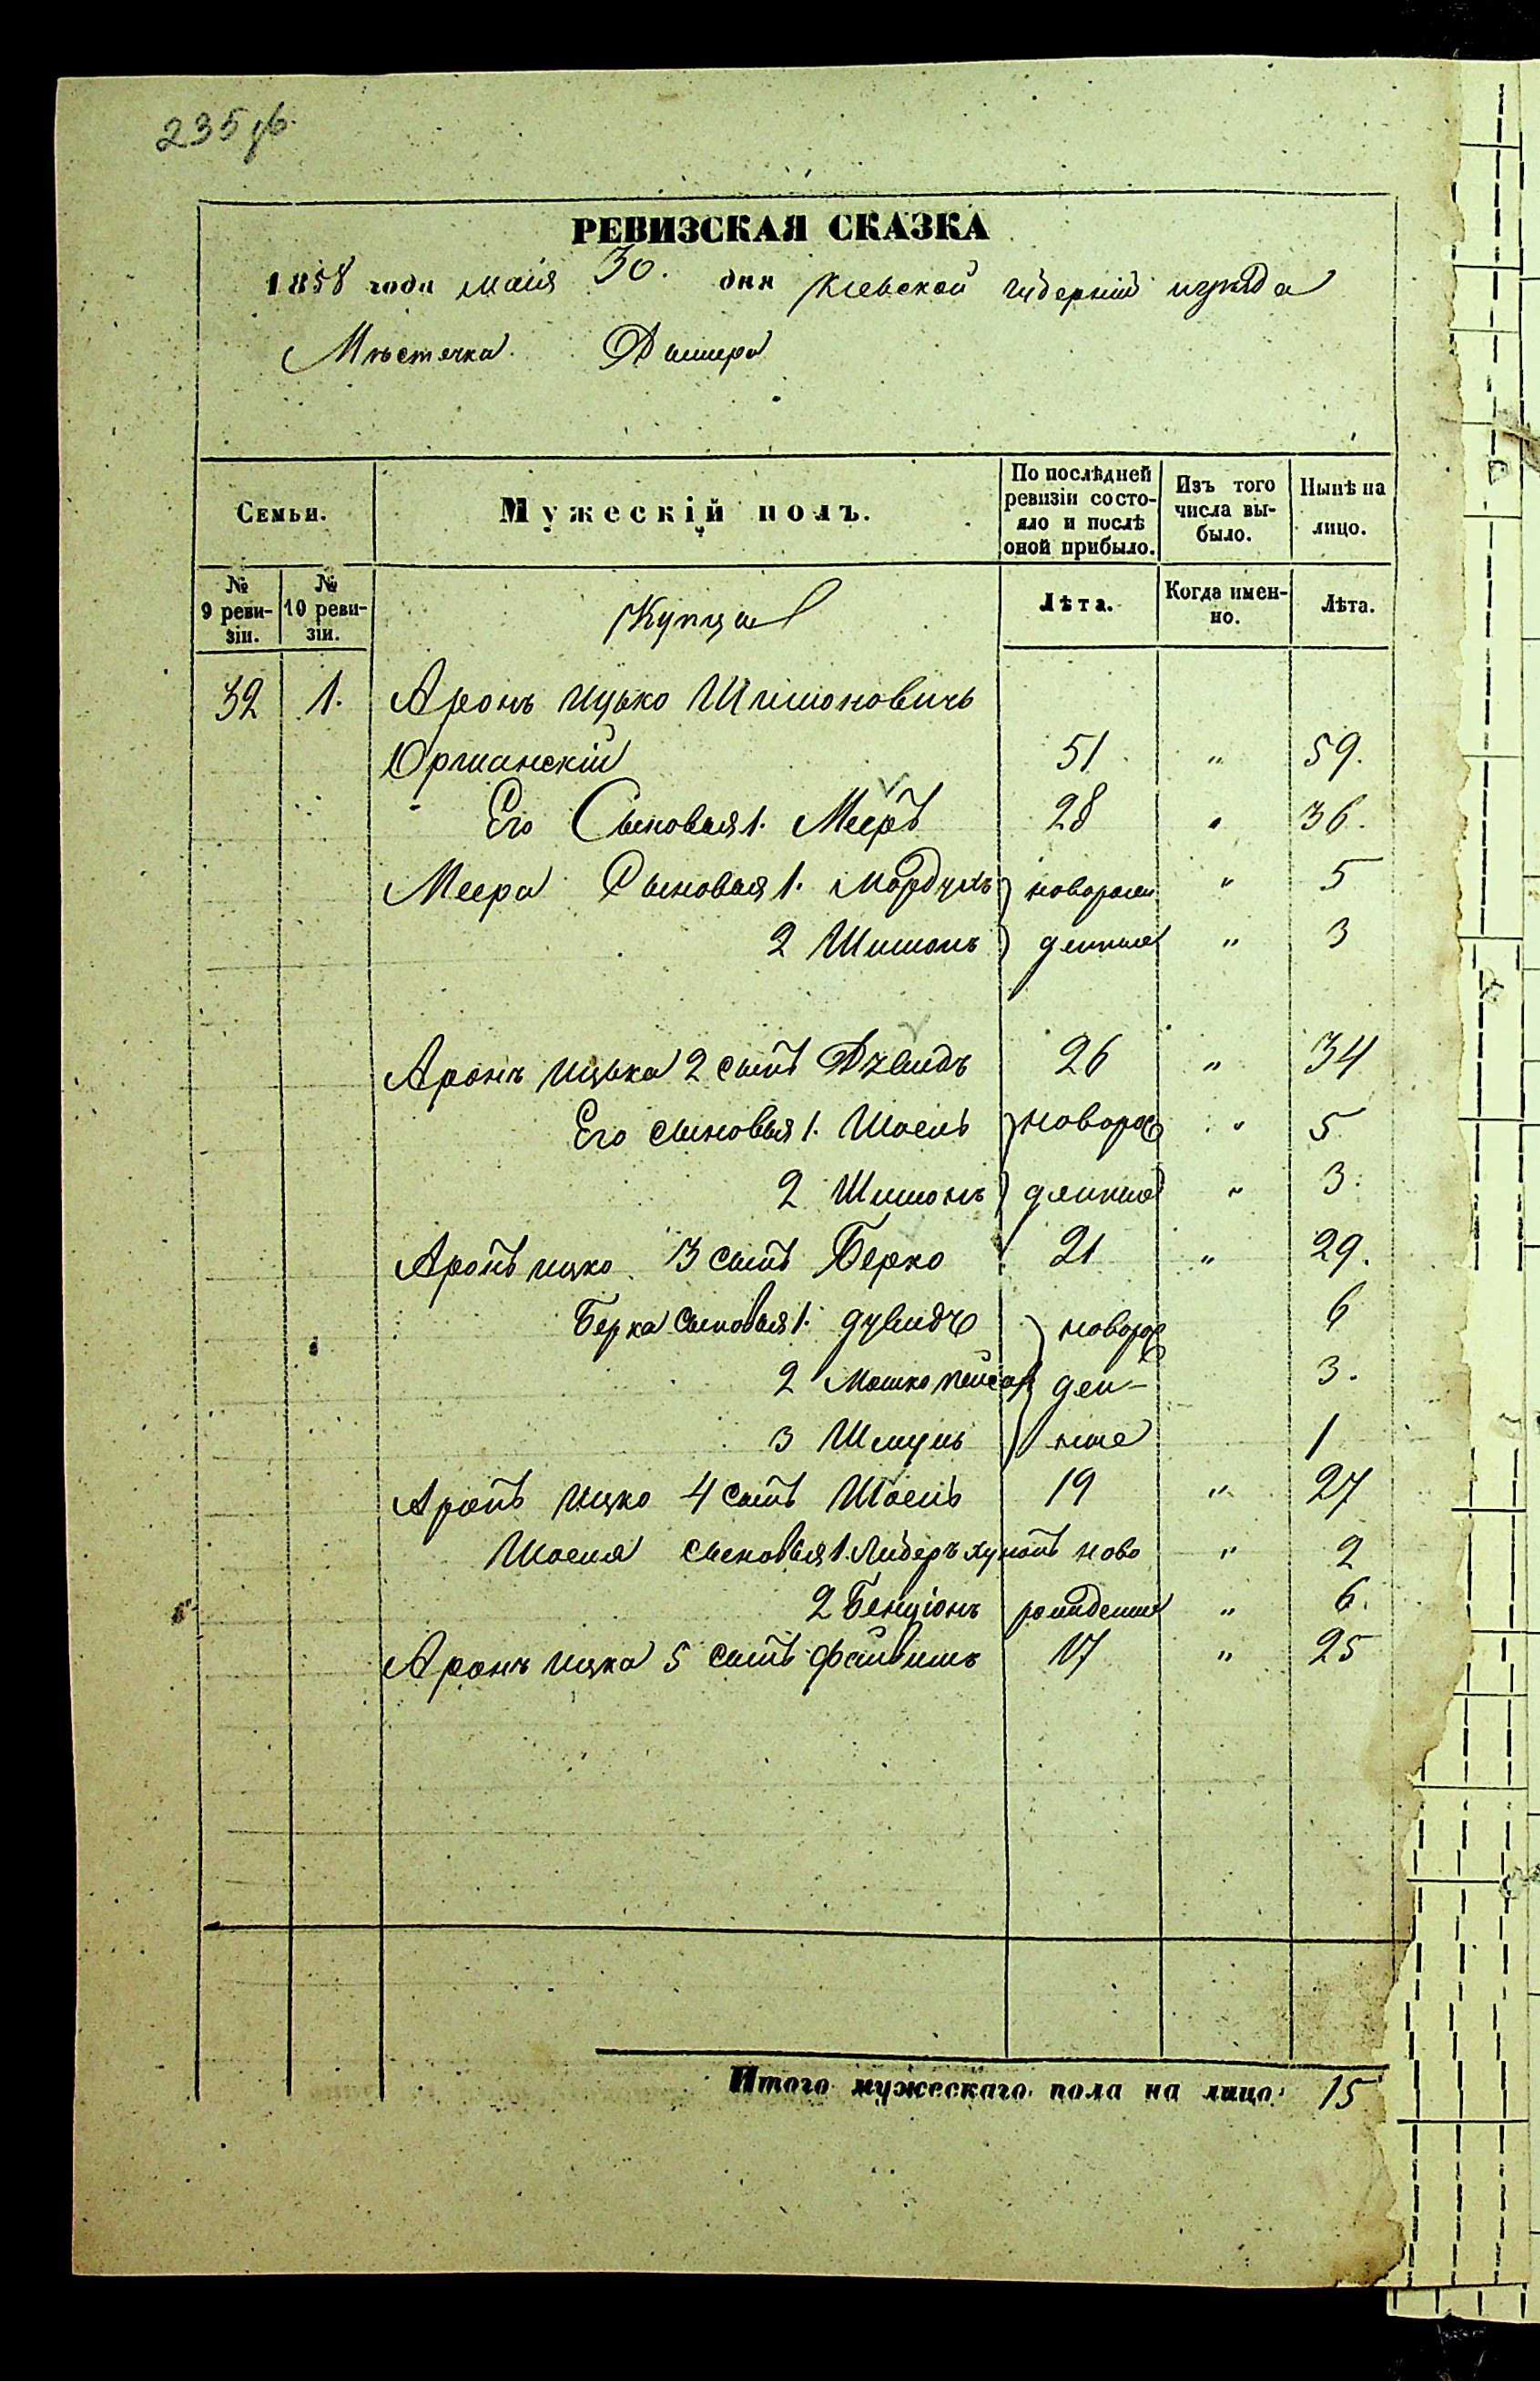 235
РЕВИЗСКАЯ СКАЗКА
1858 года маія 30. дня Кіевской губерніи иуѣзда
Мѣстечка Дымера
Семьи.
Мужескій полъ.
По послѣдней ревизіи состояло и послѣ оной прибыло.
Изъ того числа выбыло.
Нынѣ на лицо.
№ 9 ревизіи.
№ 10 ревизіи.
Купцы
Лѣта.
Когда именно.
Лѣта.
32 1. Аронъ Ицько Шимоновичь
51 " 59.
Его Сыновья 1. Меерѣ 28 " 36.
Меера Сыновья 1. Мордухъ новорож " 5
2 Шимонъ денные " 3
Аронъ Ицька 2 сынъ Дувидъ 26 " 34
Его сыновья 1. Шоель новорож " 5
2 Шимонъ денные " 3.
Аронъ ицко 3 сынъ Берко 21 " 29.
Берка сыновья 1. дувидъ новорож 6
2 Мошко пейсах ден- 3.
3 Шмуль ные 1
Аронъ Ицко 4 сынъ Шоель 19 " 27
Шоеля сыновья 1. Либеръ ново " 2
2 Бенціонъ рожденные " 6.
Аронъ ицка 5 сынъ Файвишъ 17 " 25
Итого мужескаго пола на лицо: 15